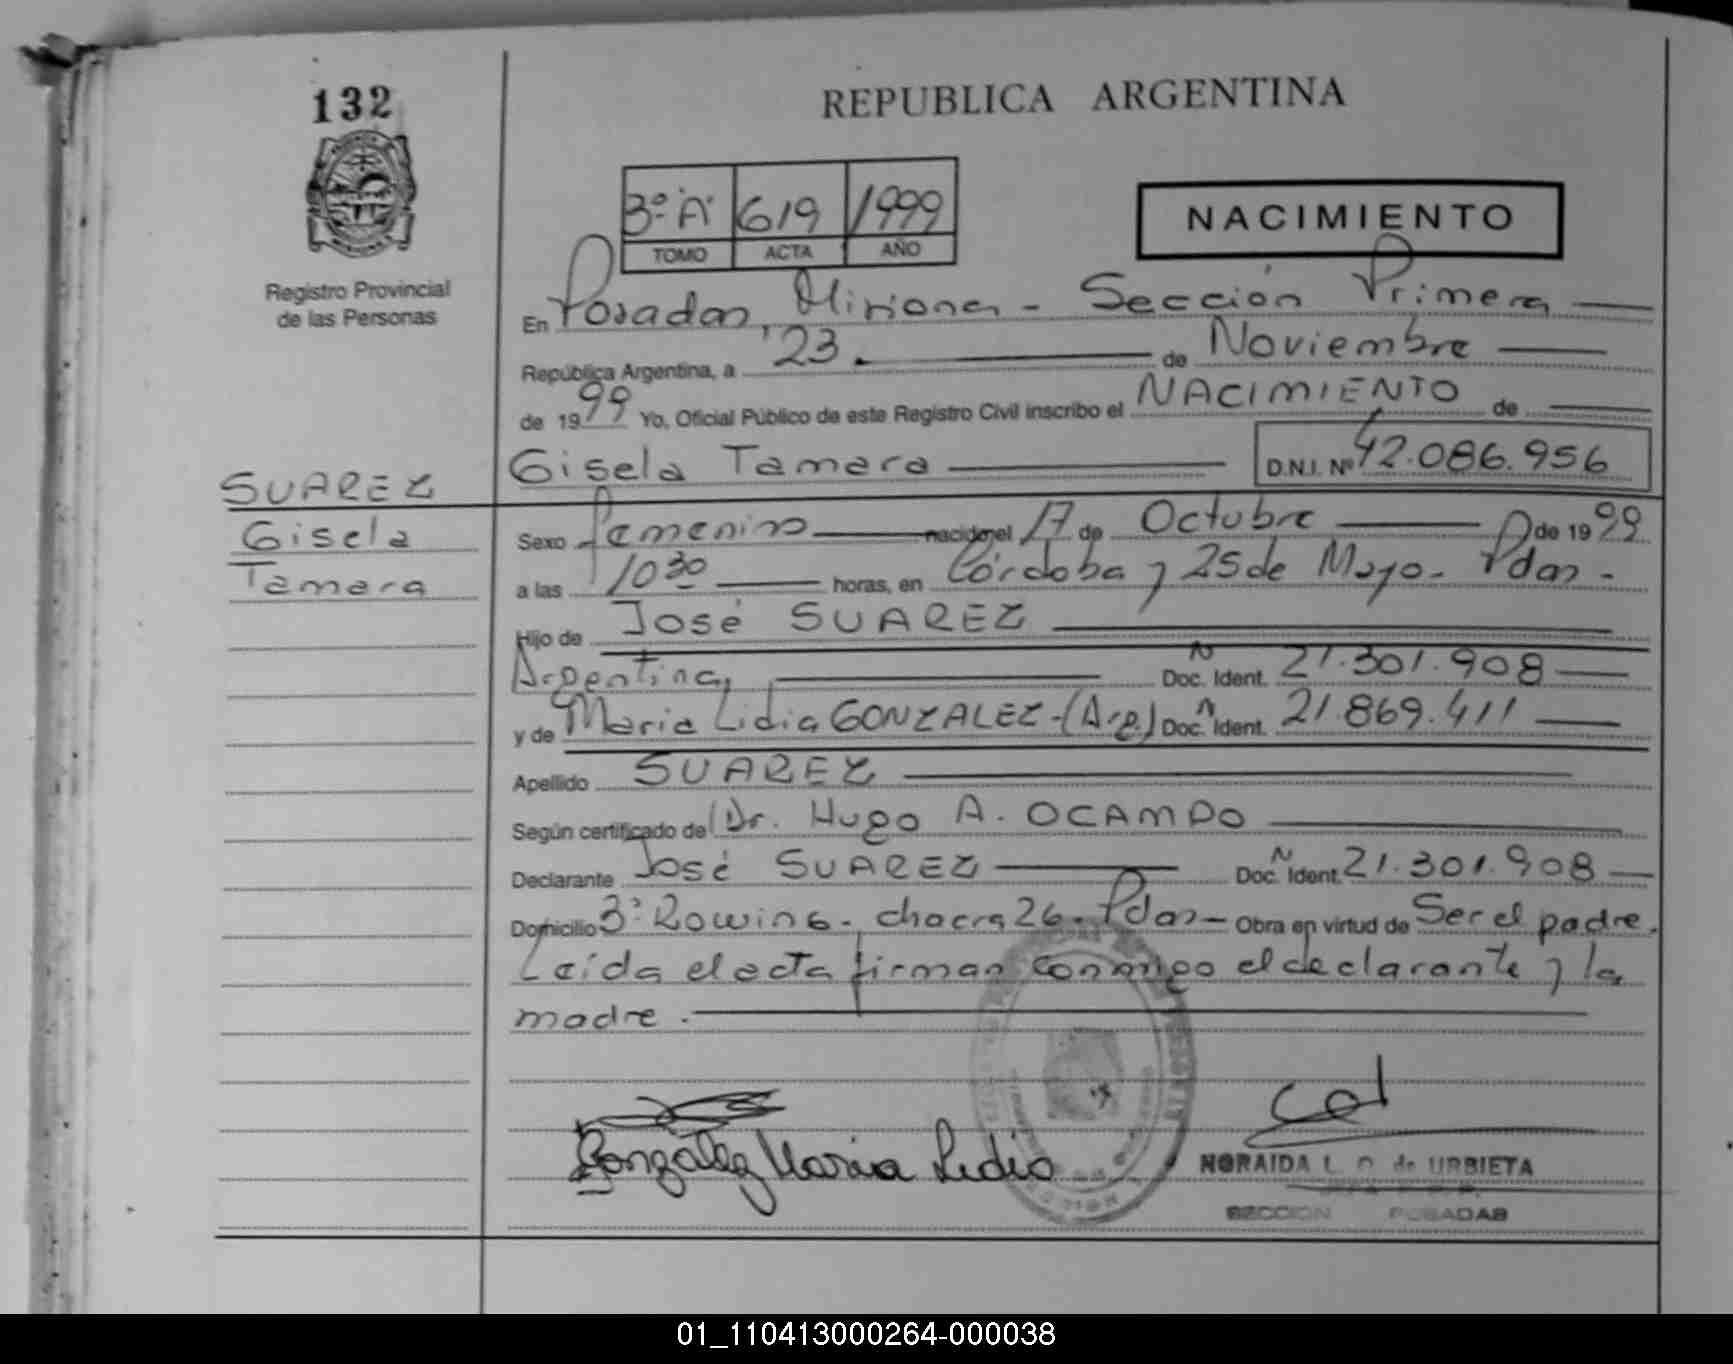 132
REPUBLICA ARGENTINA
3º "A" 619 1999
TOMO ACTA AÑO
NACIMIENTO
Registro Provincial
de las Personas
En Posadas, Misiones - Sección Primera
República Argentina, a 23. de Noviembre
de 1999 Yo, Oficial Público de este Registro Civil inscribo el NACIMIENTO de
Gisela Tamara D.N.I. Nº 42.086.956
SUAREZ
Gisela
Tamara
Sexo femenino nacido el 17 de Octubre de 1999
a las 10 30 horas, en Córdoba y 25 de Mayo - Pdas -
Hijo de José SUAREZ
Argentina, Doc. Ident. N 21.301.908
y de Maria Lidia GONZALEZ - (Arg.) Doc. Ident. N 21.869.411
Apellido SUAREZ
Según certificado de Dr. Hugo A. OCAMPO
Declarante José SUAREZ Doc. Ident. N 21.301.908
Domicilio 3º Rowing - chacra 26 - Pdas - Obra en virtud de Ser el padre.
Leída el acta firman conmigo el declarante y la
madre.
González Maria Lidia
NORAIDA L. de URBIETA
SECCION POSADAS
01_110413000264-000038